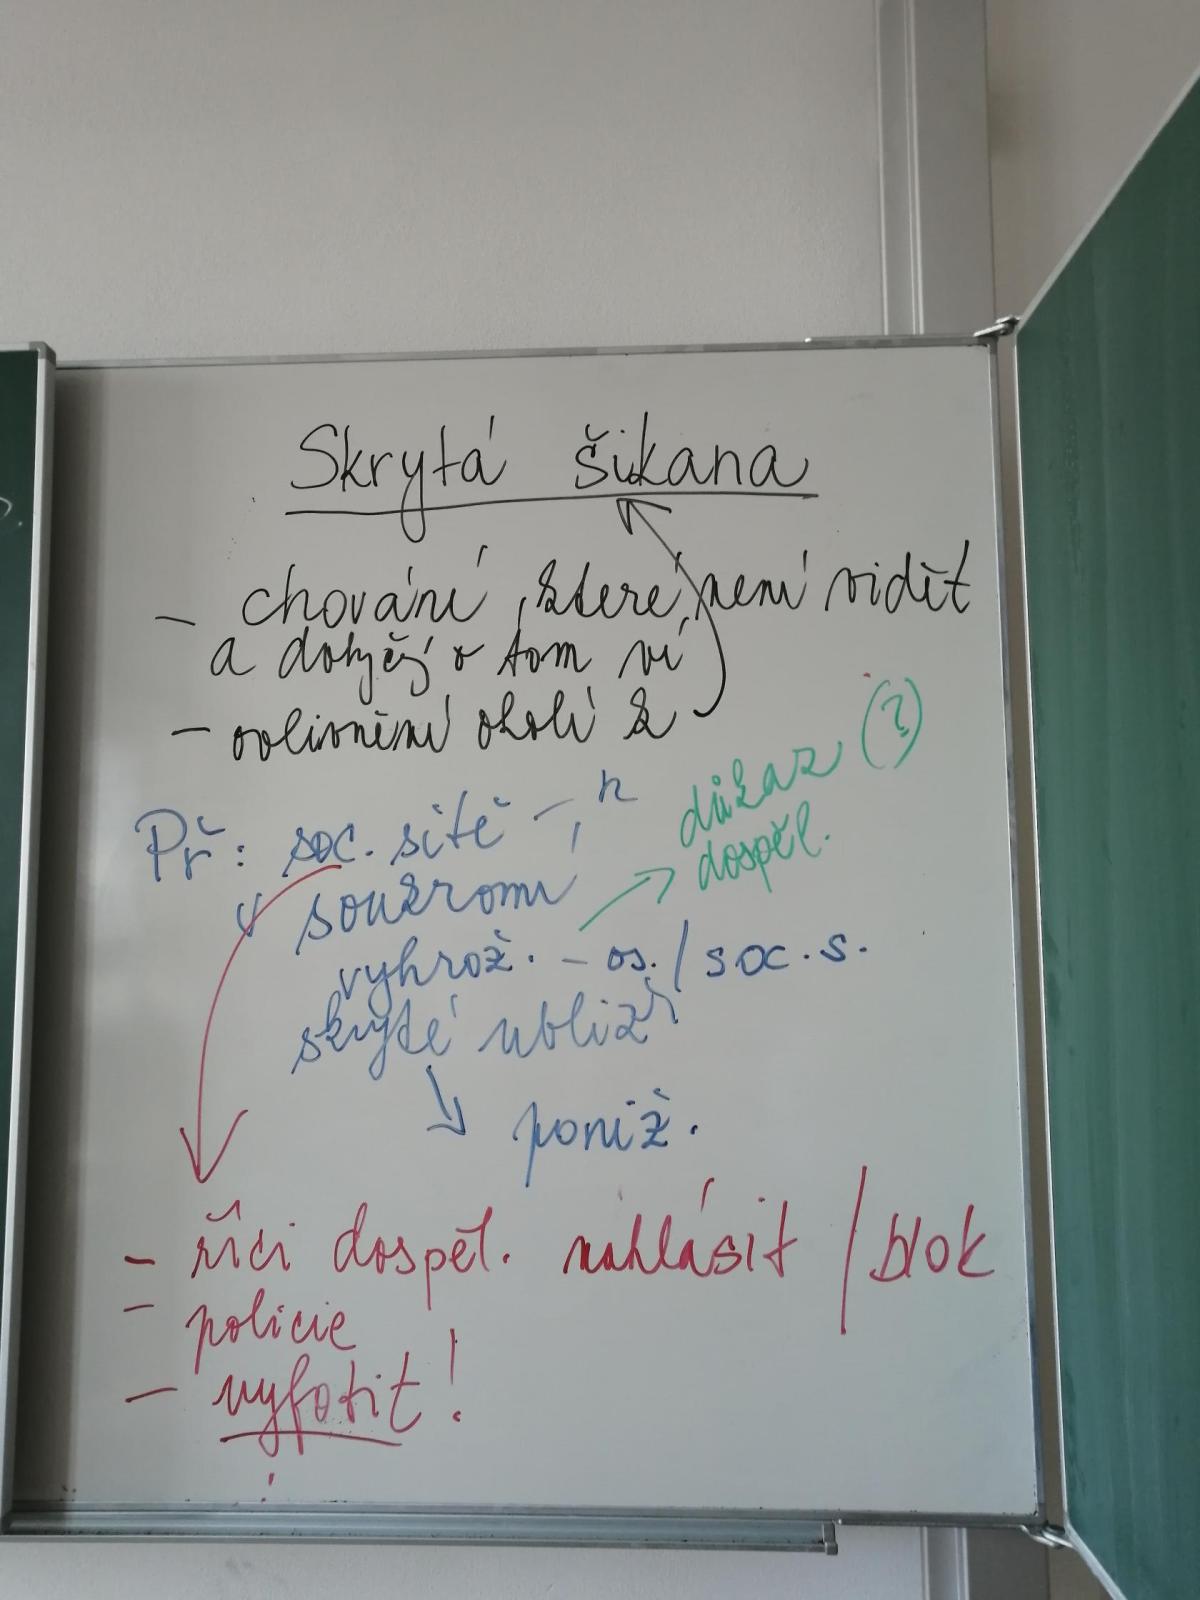 Skrytá šikana
- chování, které není vidět
a dotyčný o tom ví
- ovlivnění okolí k
Př: soc. sítě -
důkaz (?)
dospěl.
v soukromí
vyhrož. - os. / soc. s.
skryté ubliž
poniž.
- říci dospěl. nahlásit / blok
- policie
- vyfotit!